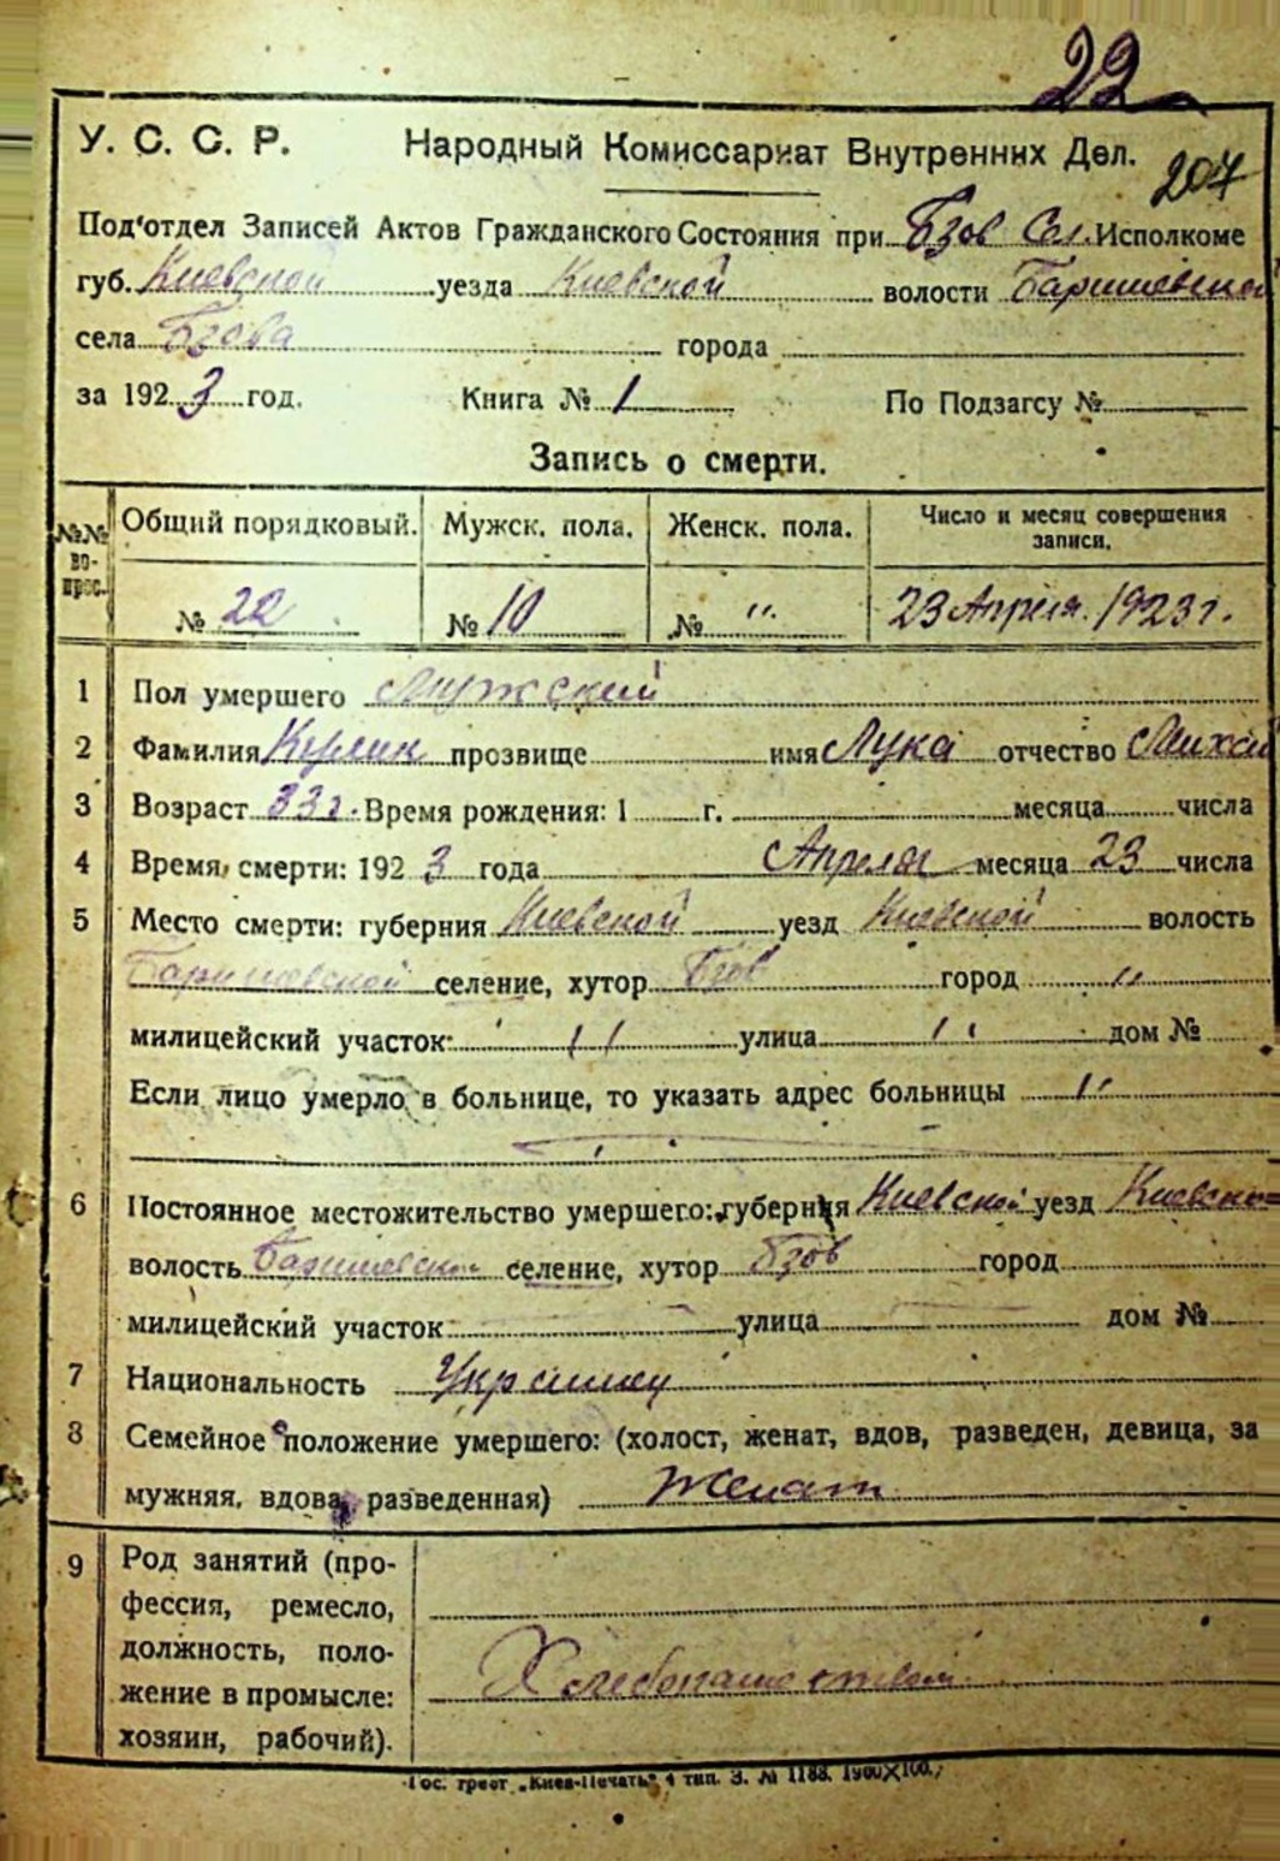 22
У. С. С. Р. Народный Комиссариат Внутренних Дел.
207
Под'отдел Записей Актов Гражданского Состояния при Бзов Сел. Исполкоме
губ. Киевской уезда Киевской волости Баришевской
села Бзова города
за 1923 год. Книга № 1 По Подзагсу №
Запись о смерти.
№№ вопрос. Общий порядковый. Мужск. пола. Женск. пола. Число и месяц совершения записи.
№ 22 № 10 № " 23 Апреля 1923 г.
1 Пол умершего Мужский
2 Фамилия прозвище имя Лука отчество Михай
3 Возраст 33 г. Время рождения: 1 г. месяца числа
4 Время смерти: 1923 года Апреля месяца 23 числа
5 Место смерти: губерния Киевской уезд Киевской волость
Баришевской селение, хутор Бзов город "
милицейский участок: " улица " дом №
Если лицо умерло в больнице, то указать адрес больницы "
6 Постоянное местожительство умершего: губерния Киевской уезд Киевско
волость Баришевской селение, хутор Бзов город
милицейский участок улица дом №
7 Национальность Украинец
8 Семейное положение умершего: (холост, женат, вдов, разведен, девица, за
мужняя, вдова, разведенная) Женат
9 Род занятий (про-
фессия, ремесло,
должность, поло-
жение в промысле:
хозяин, рабочий).
Хлебопашеством
Гос. трест „Киев-Печать" 4 тип. З. № 1188. 1900×100.